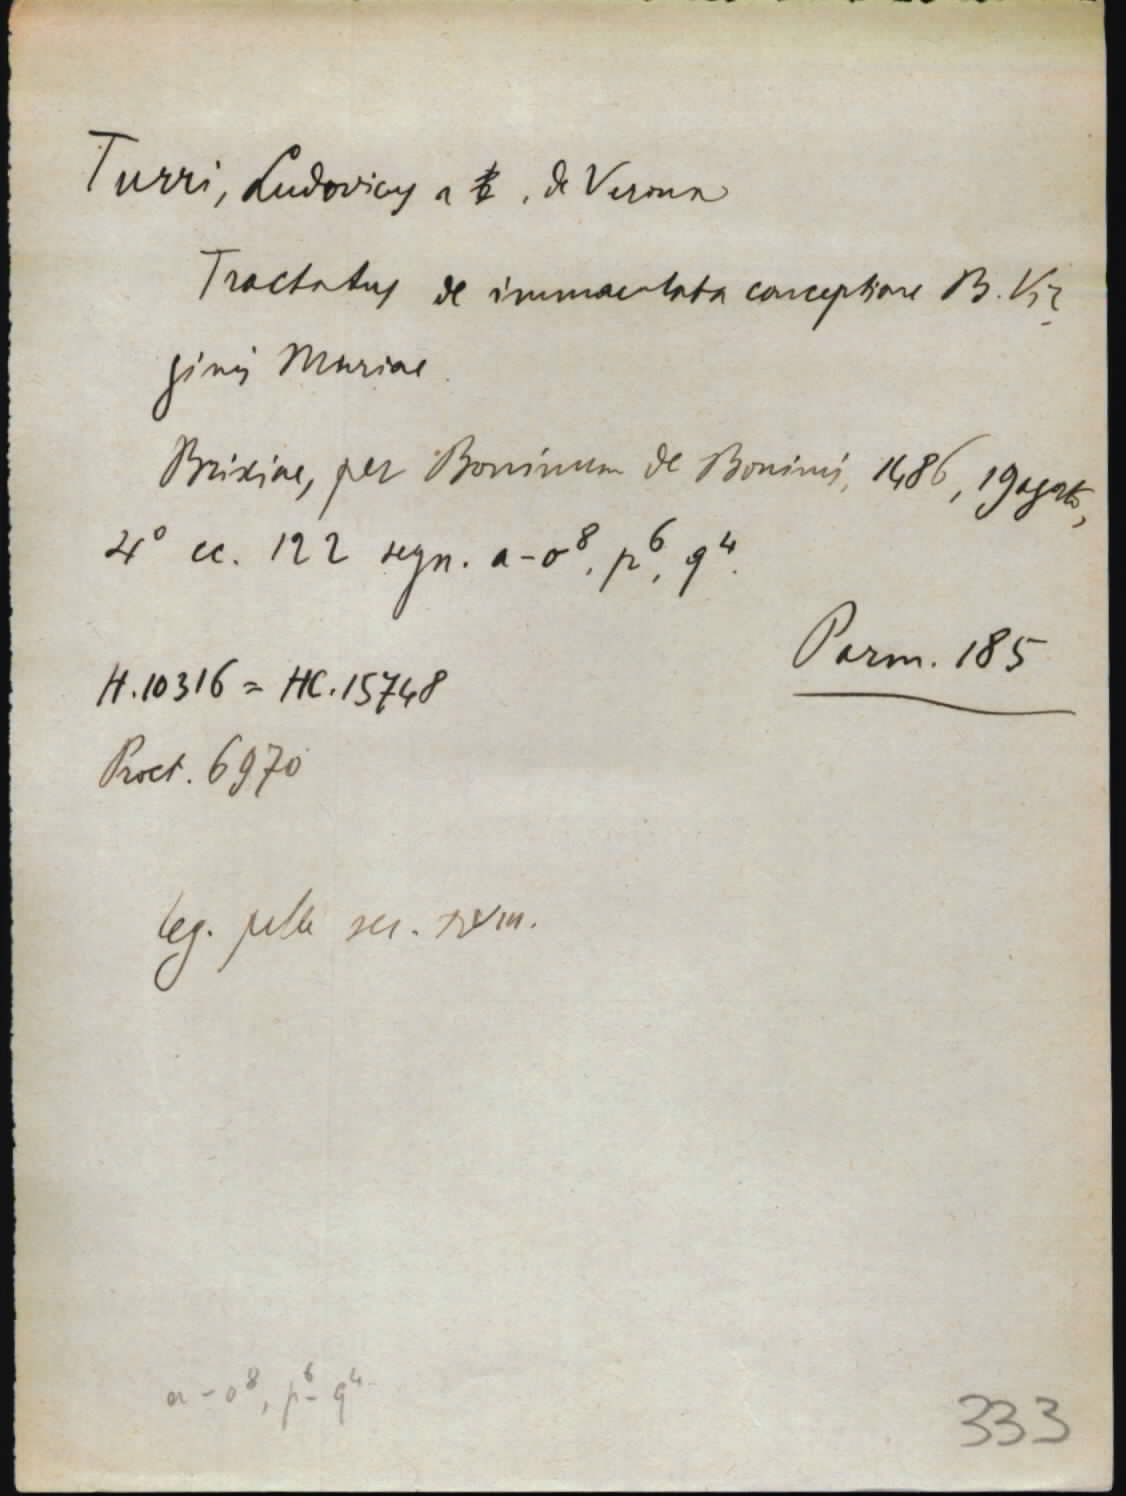 Turri, Ludovicus a t, de Verona
Tractatus de immaculata conceptione B. Vir
ginis Mariae
Brixiae, per Boninum de Boninis, 1486, 19 agosto,
4° cc. 122 segn. a-o⁸, p⁶, q⁴.
Parm. 185
H. 10316 = HC. 15748
Proct. 6970
leg. pelle sec. XVIII.
a-o⁸, p⁶- q⁴
333